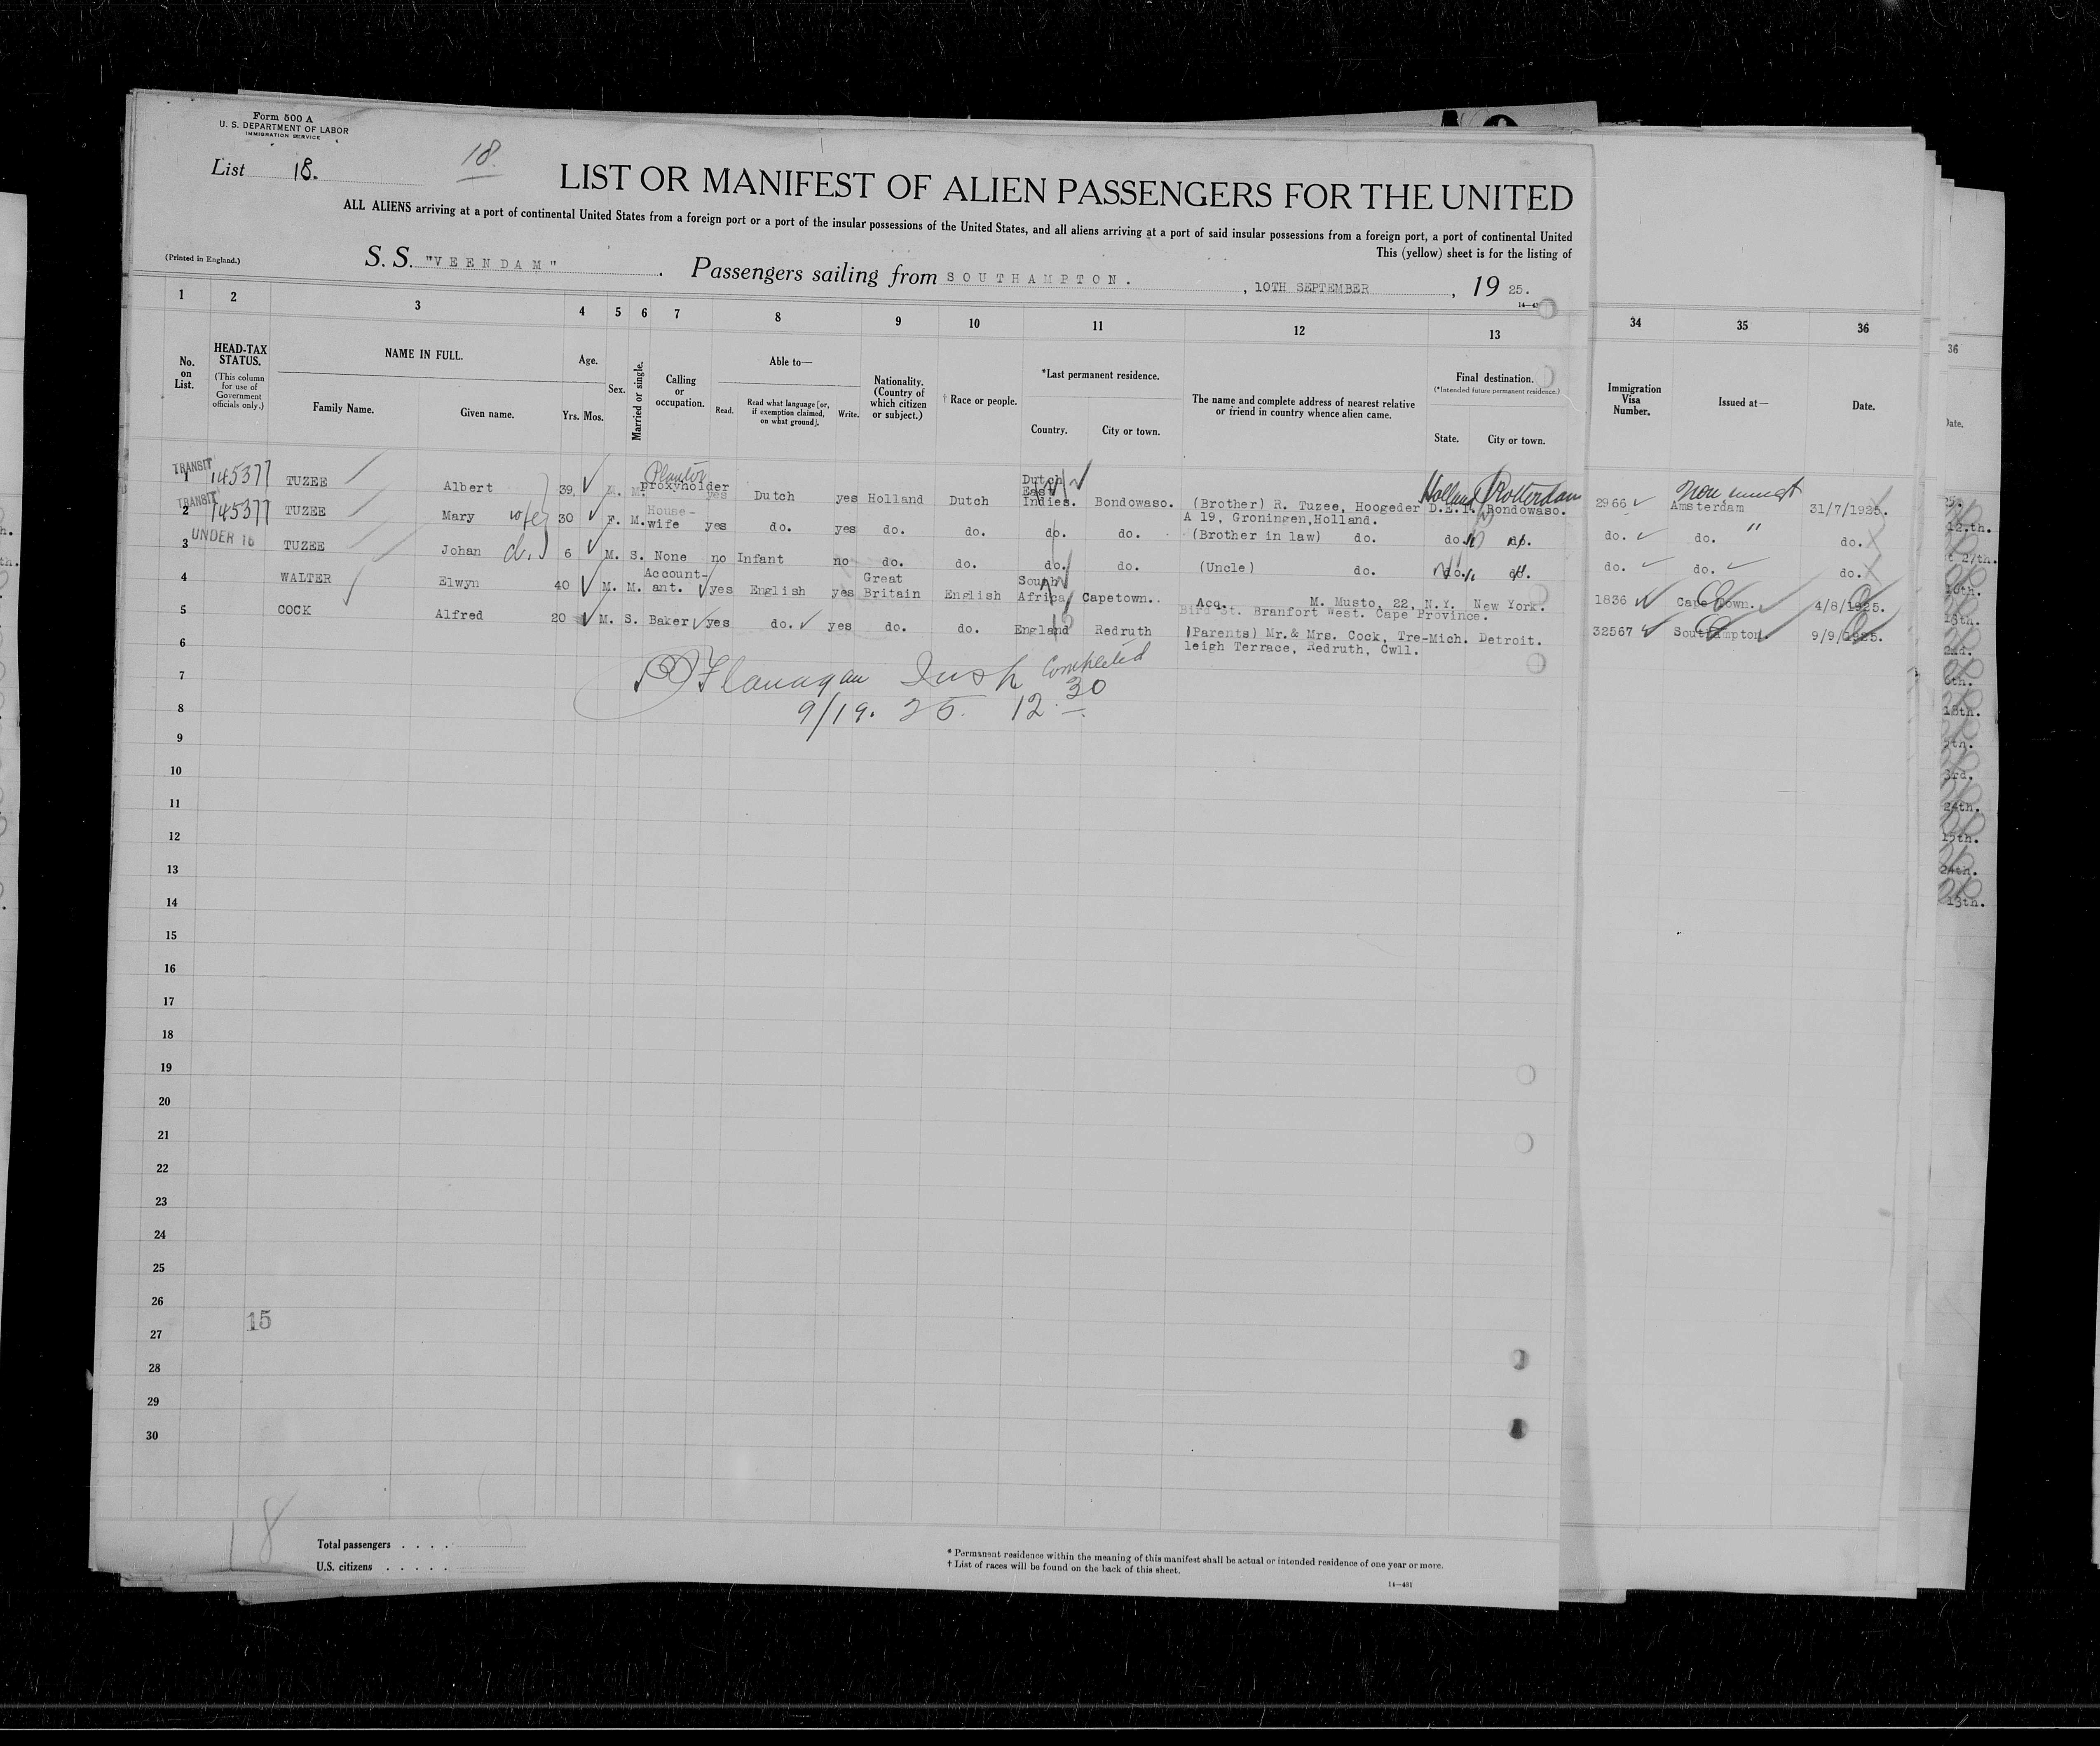 Form 500 A
U. S. DEPARTMENT OF LABOR
IMMIGRATION SERVICE
List 18.
18.
LIST OR MANIFEST OF ALIEN PASSENGERS FOR THE UNITED
ALL ALIENS arriving at a port of continental United States from a foreign port or a port of the insular possessions of the United States, and all aliens arriving at a port of said insular possessions from a foreign port, a port of continental United
This (yellow) sheet is for the listing of
(Printed in England.)
S. S. "VEENDAM" . Passengers sailing from SOUTHAMPTON. , 10TH SEPTEMBER , 19 25.
1 2 3 4 5 6 7 8 9 10 11 12 13 34 35 36
No. on List.
HEAD-TAX STATUS.
(This column for use of Government officials only.)
NAME IN FULL.
Family Name. Given name.
Age.
Yrs. Mos.
Sex.
Married or single.
Calling or occupation.
Able to—
Read. Read what language [or, if exemption claimed, on what ground]. Write.
Nationality. (Country of which citizen or subject.)
† Race or people.
*Last permanent residence.
Country. City or town.
The name and complete address of nearest relative or friend in country whence alien came.
Final destination.
(*Intended future permanent residence.)
State. City or town.
Immigration Visa Number.
Issued at—
Date.
36
Date.
Planter
Holland Rotterdam
1 TRANSIT 145377 TUZEE Albert 39 M. M. proxyholder yes Dutch yes Holland Dutch Dutch East Indies. Bondowaso. (Brother) R. Tuzee, Hoogeder A 19, Groningen, Holland. D.E.I. Bondowaso. 2966 Amsterdam 31/7/1925.
2 TRANSIT 145377 TUZEE Mary wife 30 F. M. House-wife yes do. yes do. do. do. do. (Brother in law) do. do. do. do. do. " do.
3 UNDER 16 TUZEE Johan 6 M. S. None no Infant no do. do. do. do. (Uncle) do. do. do. do. do. do.
4 WALTER Elwyn 40 M. M. Account-ant. yes English yes Great Britain English South Africa Capetown. Acq. M. Musto, 22, Bird St. Branfort West. Cape Province. N.Y. New York. 1836 Cape Town. 4/8/1925.
5 COCK Alfred 20 M. S. Baker yes do. yes do. do. England Redruth (Parents) Mr.& Mrs. Cock, Tre-leigh Terrace, Redruth, Cwll. Mich. Detroit. 32567 Southampton. 9/9/1925.
6
7 Flanagan Insp Completed
8 9/19. 25. 12.30
9
10
11
12
13
14
15
16
17
18
19
20
21
22
23
24
25
26
15
27
28
29
30
18
Total passengers . . . .
U.S. citizens . . . . .
* Permanent residence within the meaning of this manifest shall be actual or intended residence of one year or more.
† List of races will be found on the back of this sheet.
14—481